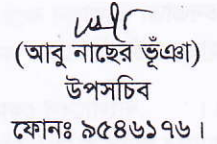 (আবু নাছের ভূঁঞা)
উপসচিব
ফোনঃ ৯৫৪৬১৭৬।